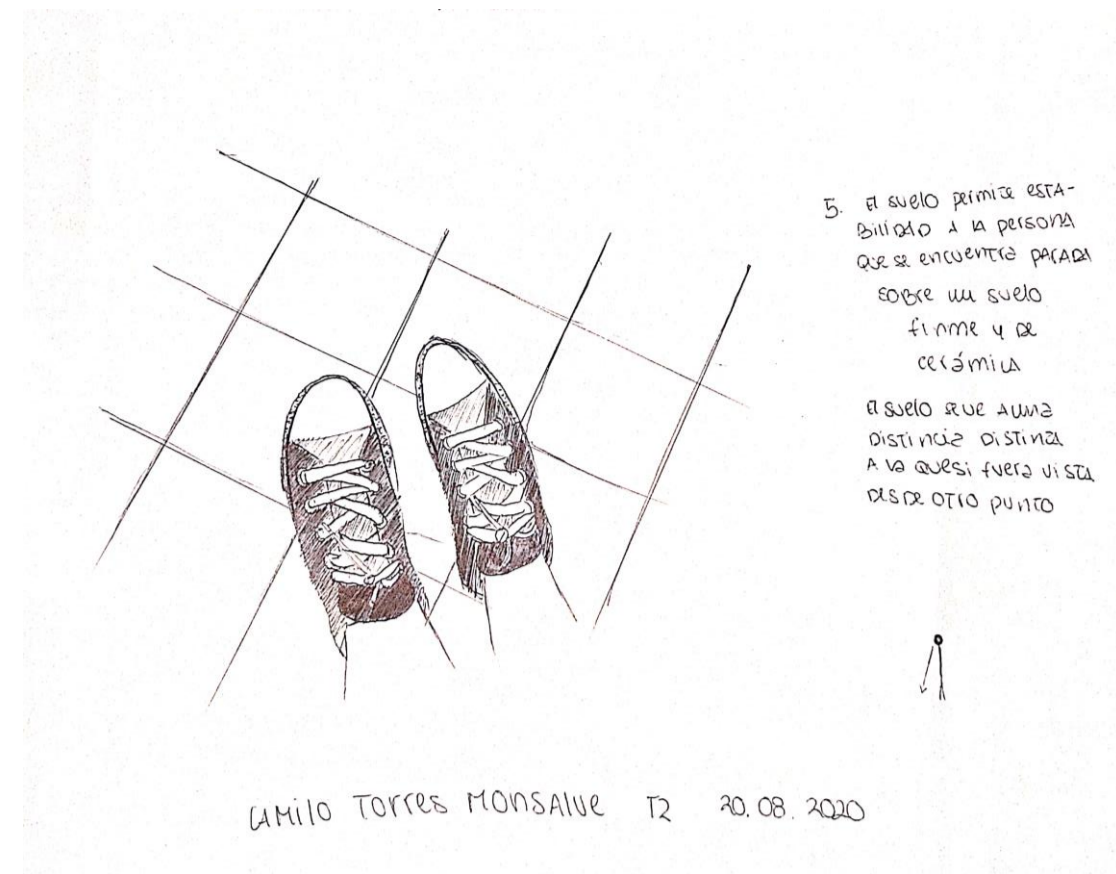 5. El suelo permite esta-
bilidad a la persona
que se encuentra parada
sobre un suelo
firme y de
cerámica
El suelo se ve a una
distincia distinta
a la que si fuera vista
desde otro punto
Camilo Torres Monsalve T2 20.08.2020